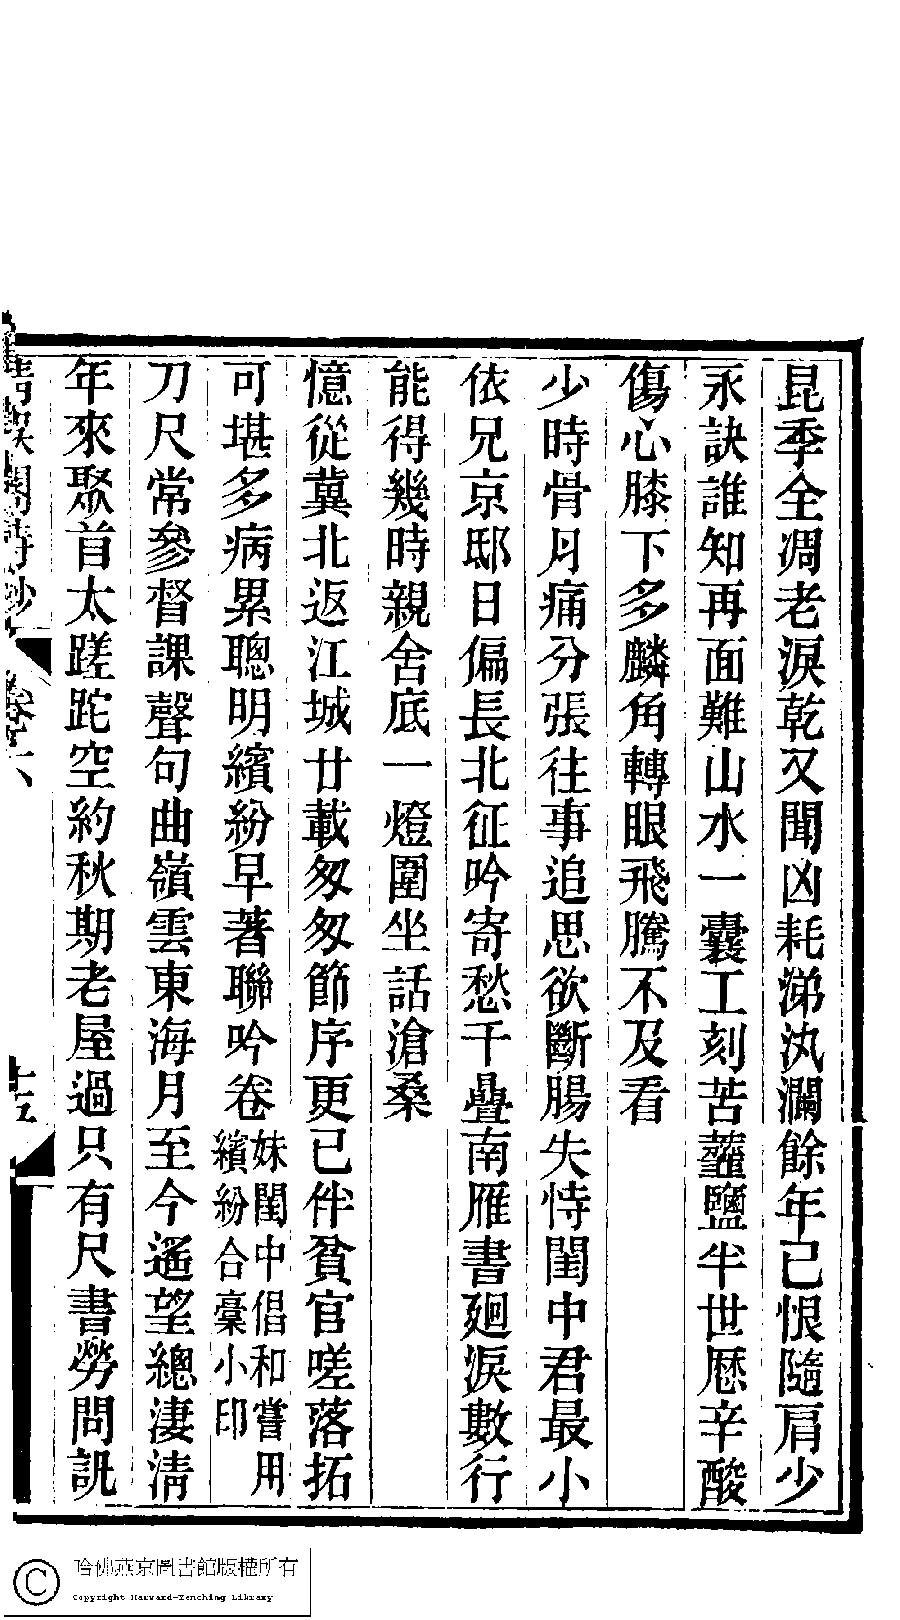 昆季全凋老淚乾又聞凶耗涕汍瀾餘年已恨隨肩少
永訣誰知再面難山水一囊工刻苦虀鹽半世歷辛酸
傷心膝下多麟角轉眼飛騰不及看
少時骨月痛分張往事追思欲斷腸失恃閨中君最小
依兄京邸日偏長北征吟寄愁千疊南雁書廻淚數行
能得幾時親舍底一燈圍坐話滄桑
憶從冀北返江城廿載匆匆節序更已伴貧官嗟落拓
可堪多病累聰明繽紛早著聯吟卷妹閨中倡和嘗用
繽紛合稾小印
刀尺常參督課聲句曲嶺雲東海月至今遙望總淒清
年來聚首太蹉跎空約秋期老屋過只有尺書勞問訊
清娛閣詩鈔
卷六
十五
哈佛燕京圖書館版權所有
Copyright Harvard-Yenching Library